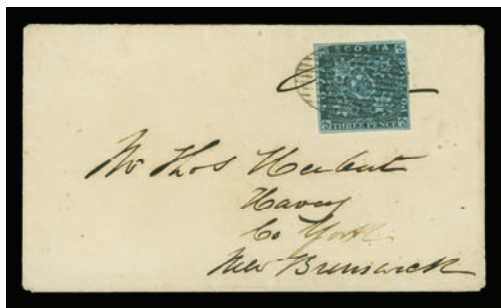 SCOTIA
THREE PENCE
Mr Thos Herbert
Harvey
Co York
New Brunswick